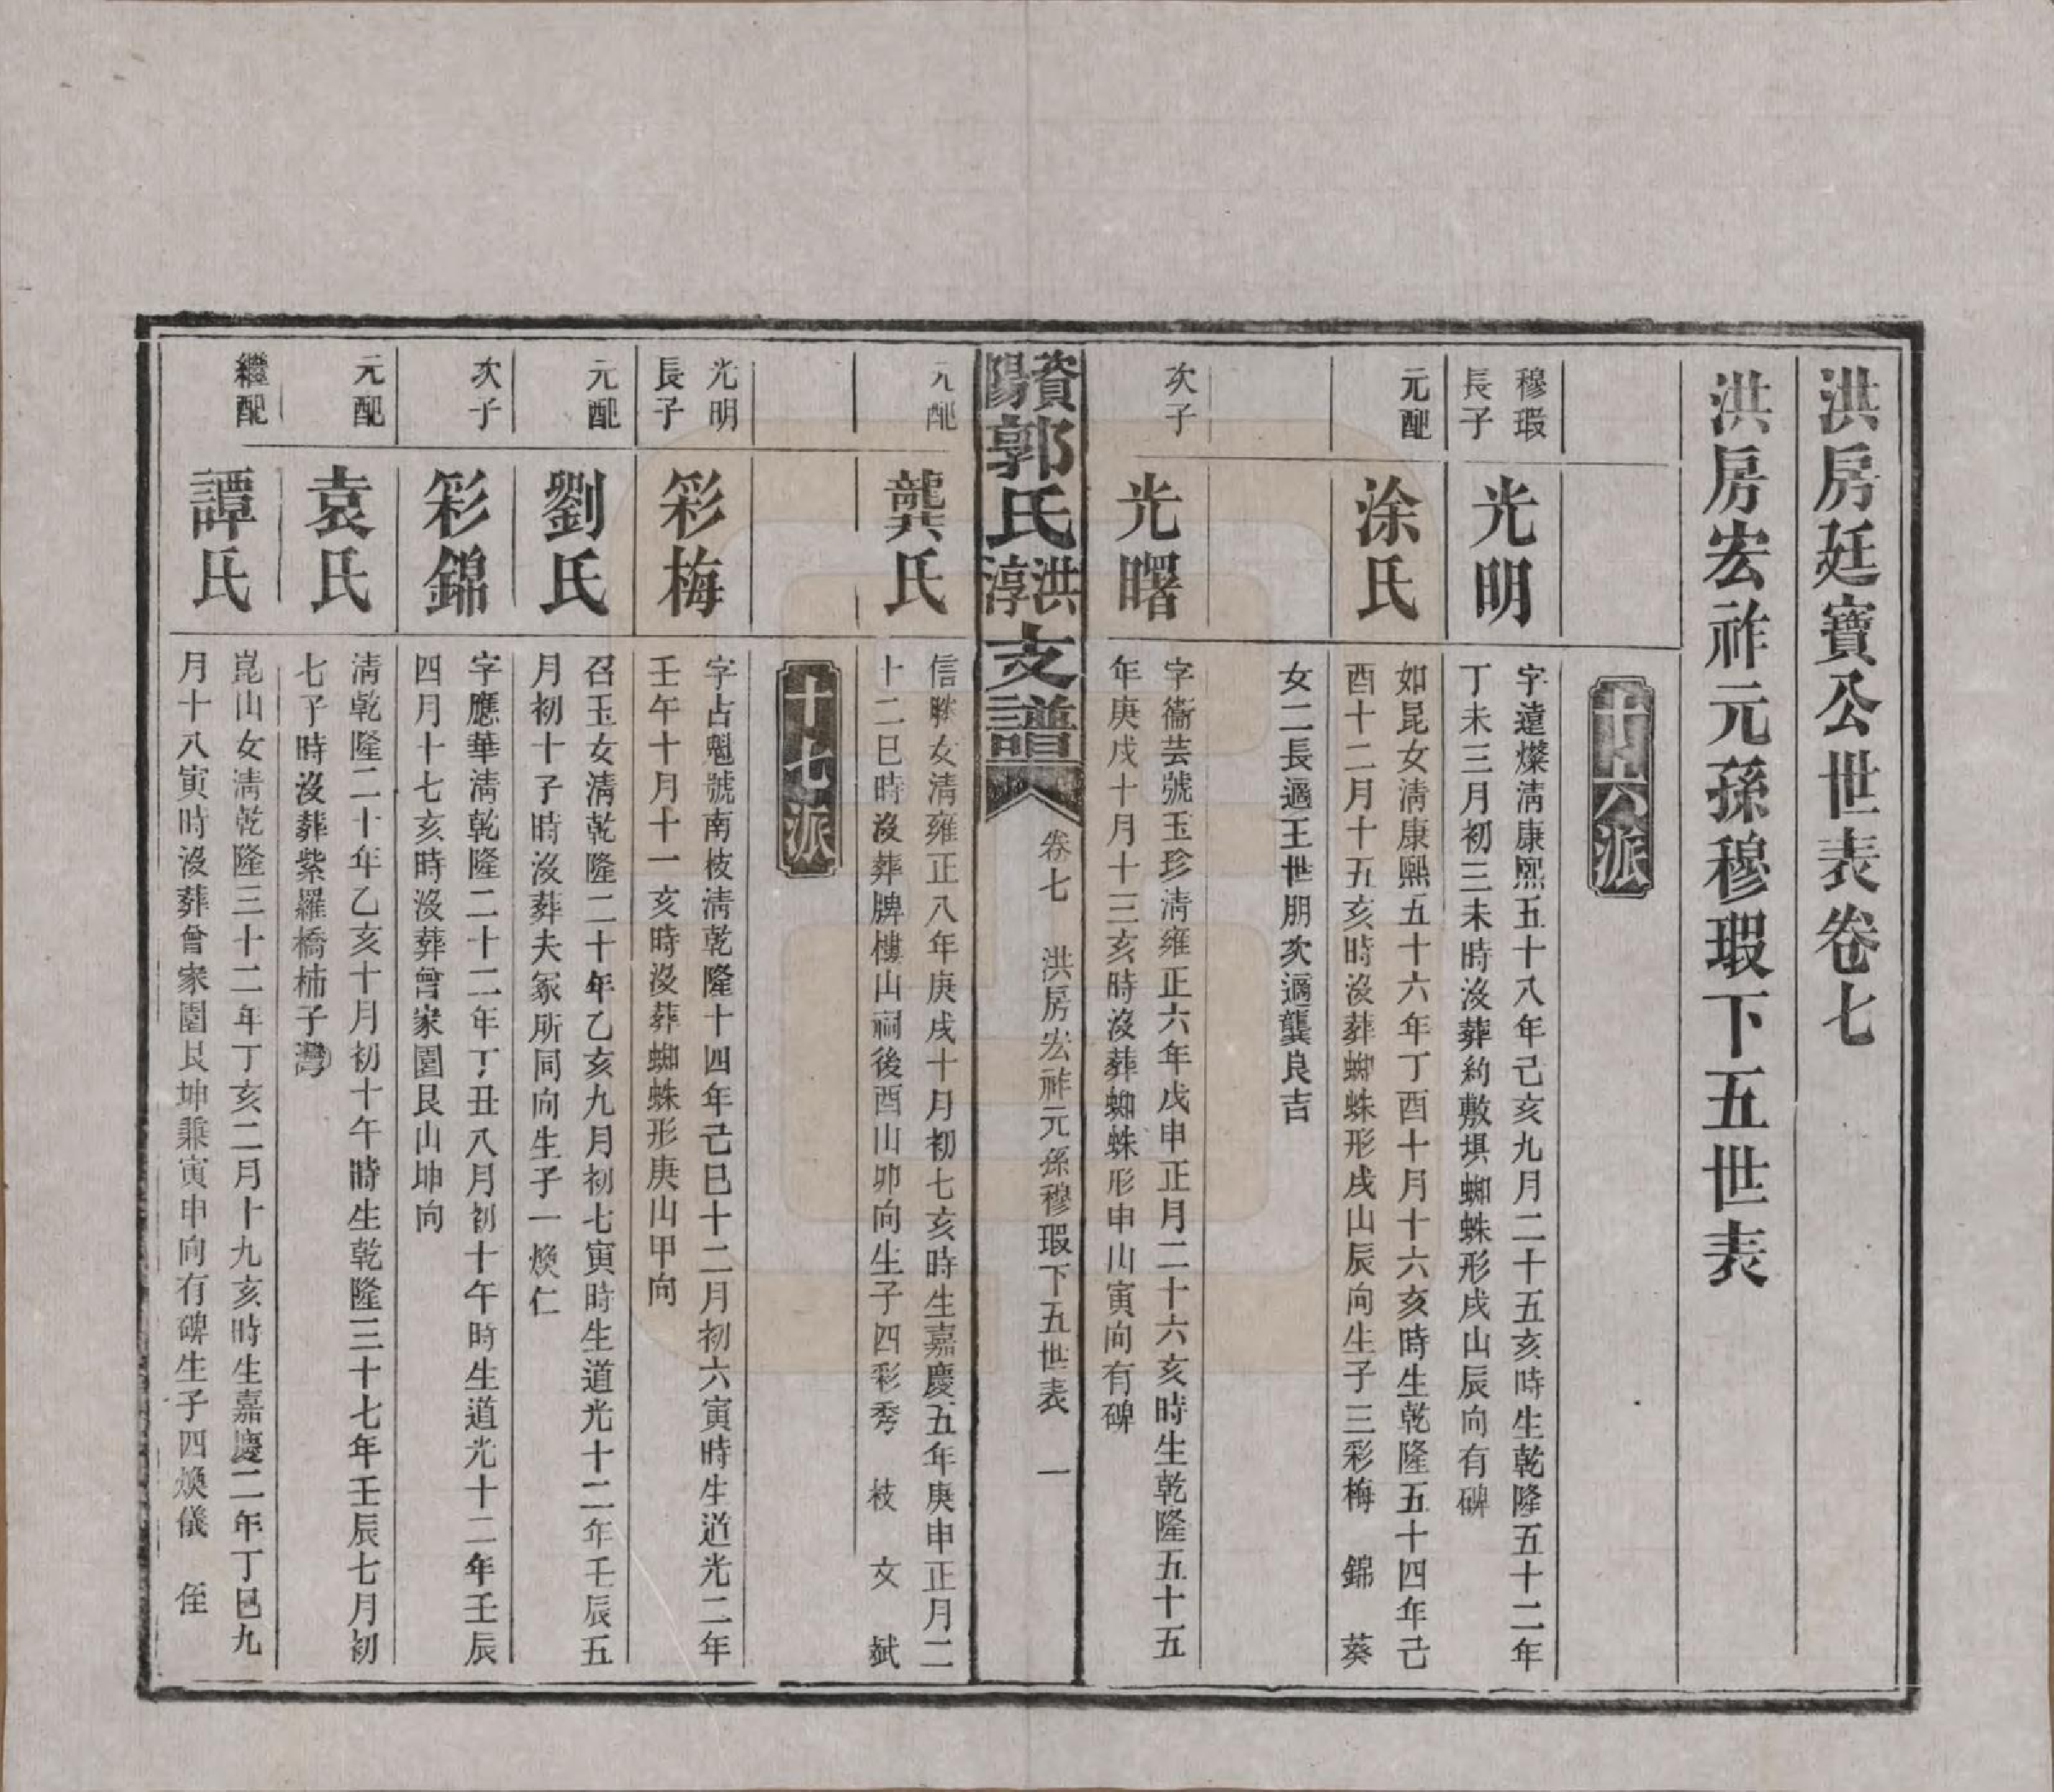 洪房廷寶公世表卷七
洪房宏祚元孫穆瑕下五世表
十六派
穆瑕
長子
光明
字遠燦淸康熙五十八年己亥九月二十五亥時生乾隆五十二年
丁未三月初三未時沒葬約敷垻蜘蛛形戌山辰向有碑
元配
涂氏
如昆女淸康熙五十六年丁酉十月十六亥時生乾隆五十四年己
酉十二月十五亥時沒葬蜘蛛形戌山辰向生子三彩梅 錦 葵
女二長適王世朋次適龔良吉
次子
光曙
字衞芸號玉珍淸雍正六年戊申正月二十六亥時生乾隆五十五
年庚戌十月十三亥時沒葬蜘蛛形申山寅向有碑
資陽郭氏洪淳支譜
卷七 洪房宏祚元孫穆瑕下五世表 一
元配
龔氏
信䑓女淸雍正八年庚戌十月初七亥時生嘉慶五年庚申正月二
十二巳時沒葬牌樓山祠後酉山卯向生子四彩秀 枝 文 斌
十七派
光明
長子
彩梅
字占魁號南枝淸乾隆十四年己巳十二月初六寅時生道光二年
壬午十月十一亥時沒葬蜘蛛形庚山甲向
元配
劉氏
召玉女淸乾隆二十年乙亥九月初七寅時生道光十二年壬辰五
月初十子時沒葬夫冢所同向生子一煥仁
次子
彩錦
字應華淸乾隆二十二年丁丑八月初十午時生道光十二年壬辰
四月十七亥時沒葬曾家園艮山坤向
元配
袁氏
淸乾隆二十年乙亥十月初十午時生乾隆三十七年壬辰七月初
七子時沒葬紫羅橋柿子灣
繼配
譚氏
崑山女淸乾隆三十二年丁亥二月十九亥時生嘉慶二年丁巳九
月十八寅時沒葬曾家園艮坤乘寅申向有碑生子四煥儀 侄